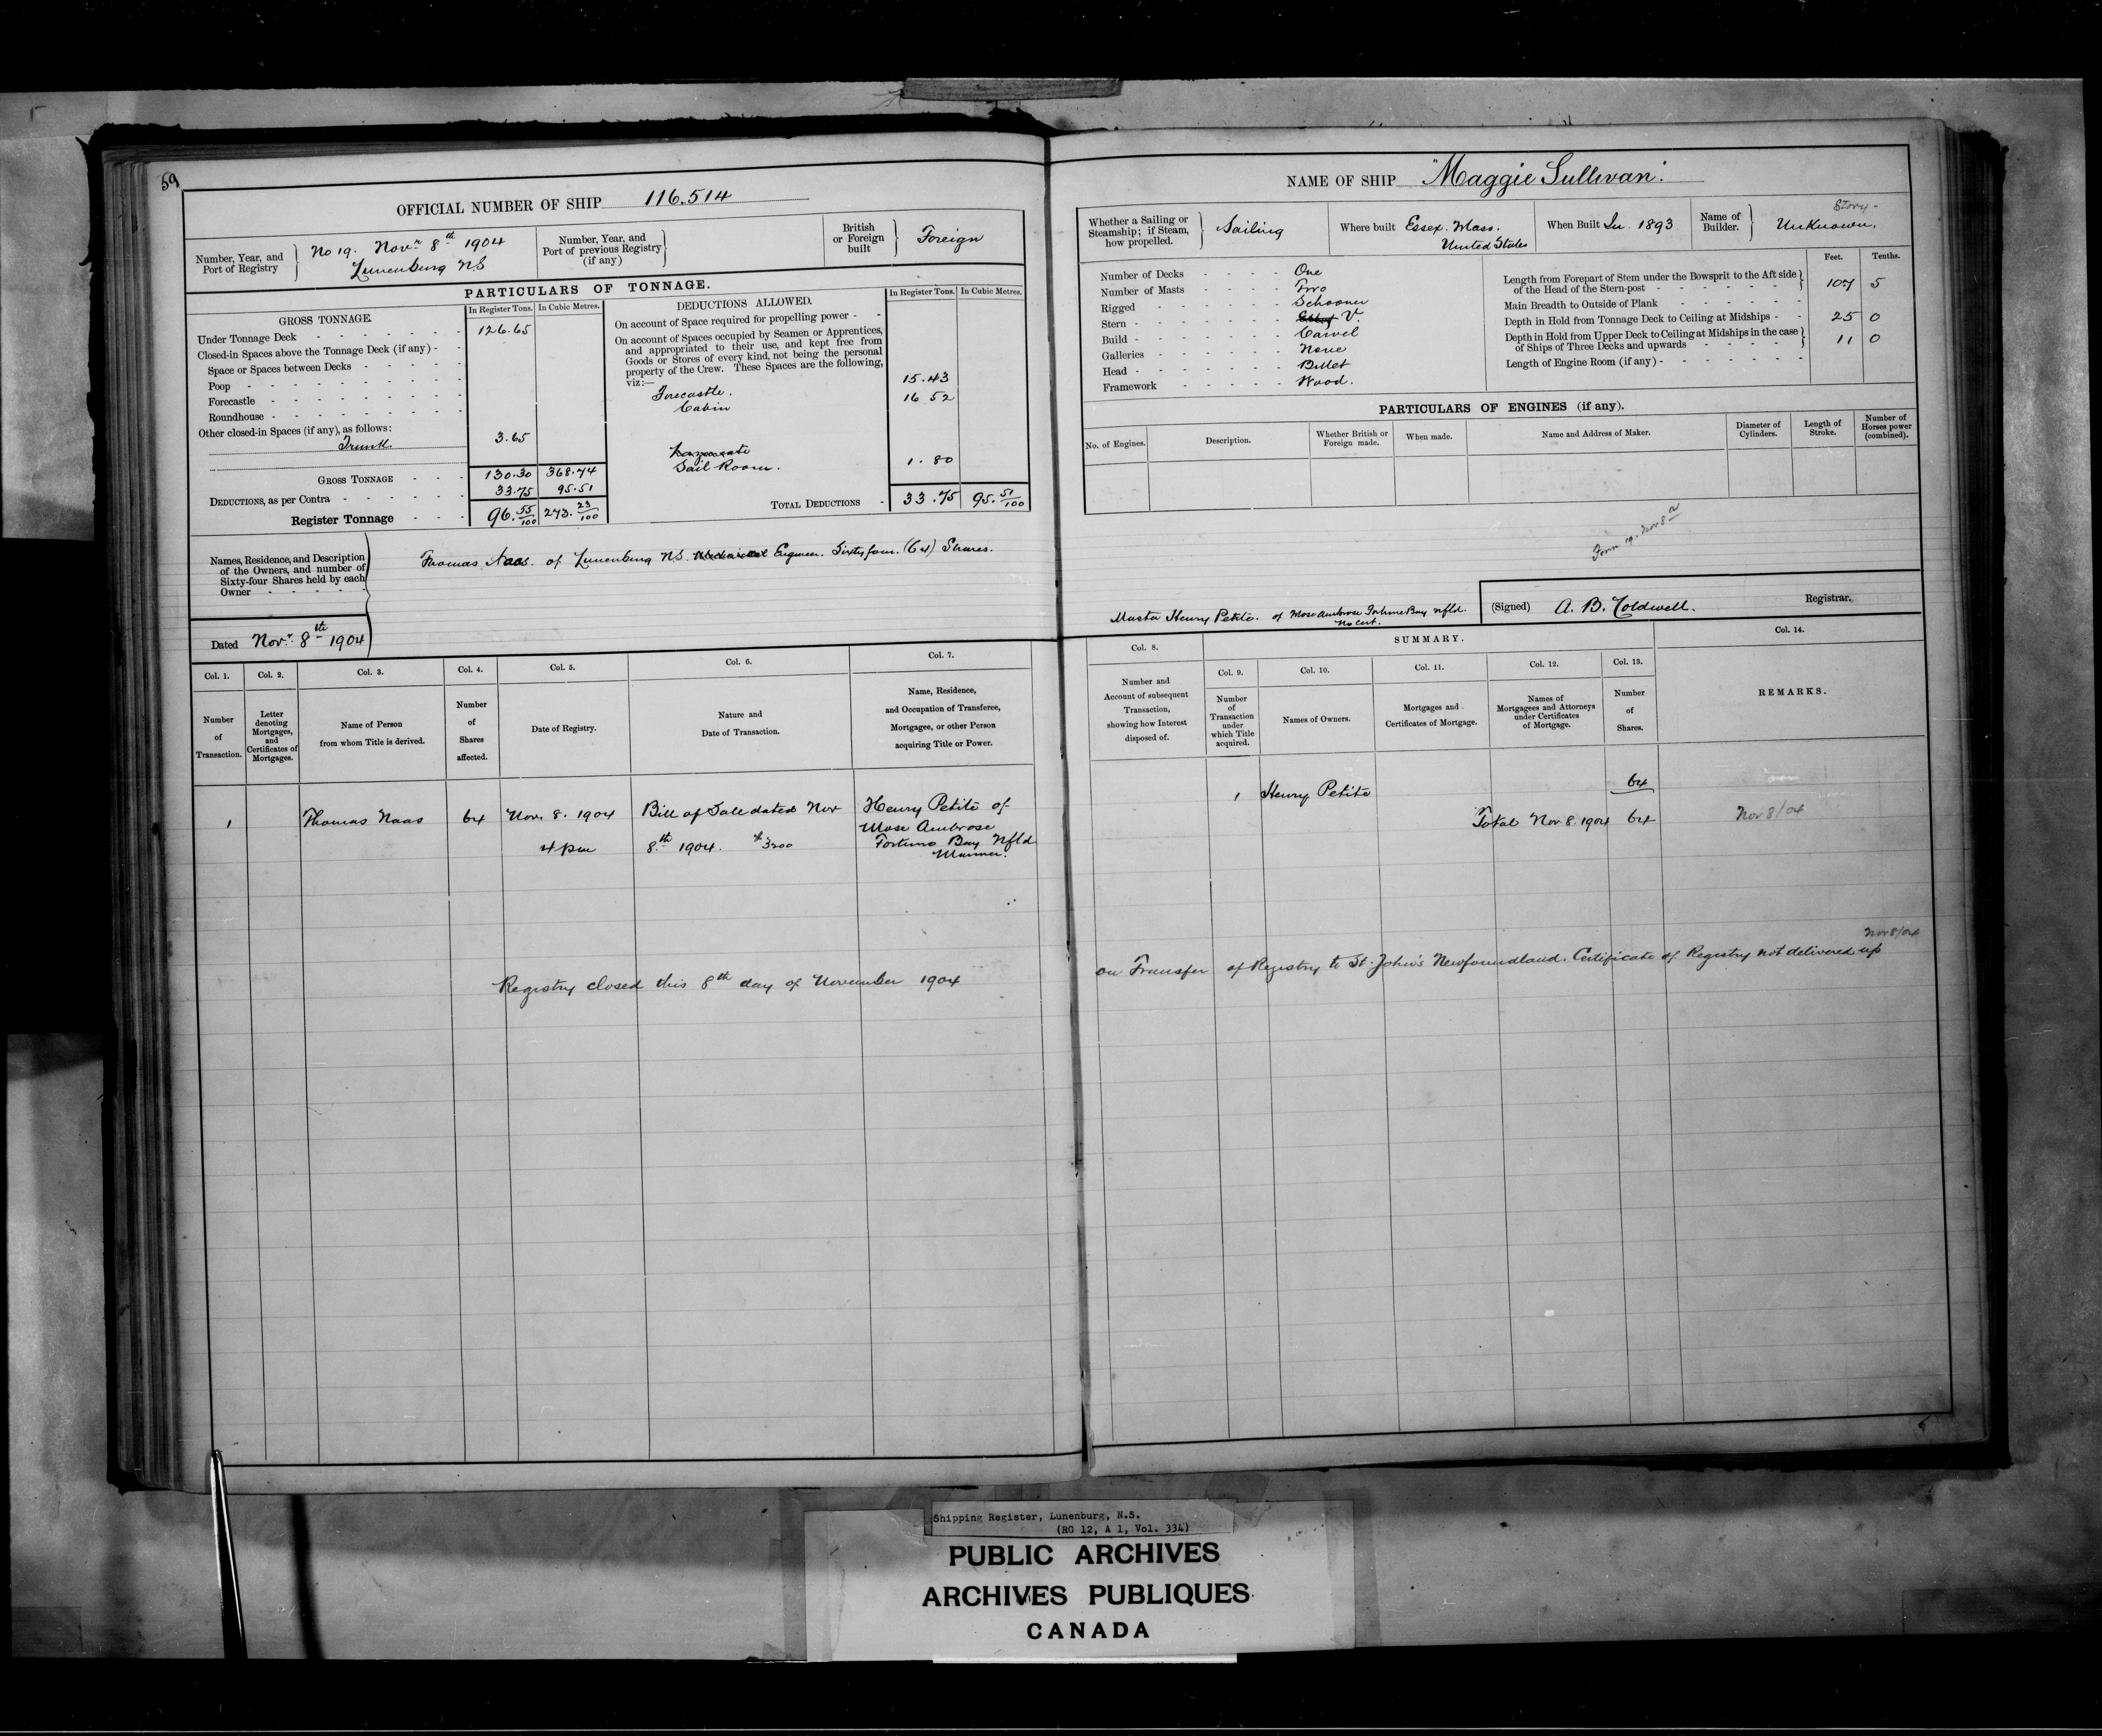 59
OFFICIAL NUMBER OF SHIP 116.514
Number, Year, and Port of Registry
No 19. Novr 8th 1904
Lunenburg NS
Number, Year, and Port of previous Registry (if any)
British or Foreign built
Foreign
PARTICULARS OF TONNAGE.
GROSS TONNAGE.
In Register Tons. In Cubic Metres.
Under Tonnage Deck 126.65
Closed-in Spaces above the Tonnage Deck (if any) -
Space or Spaces between Decks
Poop
Forecastle
Roundhouse
Other closed-in Spaces (if any), as follows:
Trunk 3.65
GROSS TONNAGE 130.30 368.74
DEDUCTIONS, as per Contra 33.75 95.51
Register Tonnage 96.55/100 273.23/100
DEDUCTIONS ALLOWED.
In Register Tons. In Cubic Metres.
On account of Space required for propelling power -
On account of Spaces occupied by Seamen or Apprentices,
and appropriated to their use, and kept free from
Goods or Stores of every kind, not being the personal
property of the Crew. These Spaces are the following,
viz:—
Forecastle. 15.43
Cabin 16 52
Sail Room. 1.80
TOTAL DEDUCTIONS - 33.75 95.51/100
Names, Residence, and Description
of the Owners, and number of
Sixty-four Shares held by each
Owner
Thomas Naas. of Lunenburg NS. Engineer. Sixty four. (64) Shares.
Dated Novr. 8th 1904
Col. 1. Col. 2. Col. 3. Col. 4. Col. 5. Col. 6. Col. 7.
Number of Transaction.
Letter denoting Mortgages, and Certificates of Mortgages.
Name of Person from whom Title is derived.
Number of Shares affected.
Date of Registry.
Nature and Date of Transaction.
Name, Residence, and Occupation of Transferee, Mortgagee, or other Person acquiring Title or Power.
1 Thomas Naas 64 Nov. 8. 1904 Bill of Sale dated Nov Henry Petite of
4 pm 8th 1904. $3200 Mose Ambrose
Fortune Bay Nfld
Mariner.
Registry closed this 8th day of November 1904
NAME OF SHIP "Maggie Sullivan".
Whether a Sailing or Steamship; if Steam, how propelled.
Sailing
Where built Essex. Mass.
United States
When Built In 1893
Name of Builder.
Story -
Unknown.
Number of Decks One
Number of Masts Two
Rigged Schooner
Stern V.
Build Carvel
Galleries None
Head Billet
Framework Wood.
Feet. Tenths.
Length from Forepart of Stem under the Bowsprit to the Aft side
of the Head of the Stern-post 107 5
Main Breadth to Outside of Plank
Depth in Hold from Tonnage Deck to Ceiling at Midships 25 0
Depth in Hold from Upper Deck to Ceiling at Midships in the case
of Ships of Three Decks and upwards 11 0
Length of Engine Room (if any)
PARTICULARS OF ENGINES (if any).
No. of Engines.
Description.
Whether British or Foreign made.
When made.
Name and Address of Maker.
Diameter of Cylinders.
Length of Stroke.
Number of Horses power (combined).
Form 19. Nov 8
Master Henry Petite. of Mose Ambrose Fortune Bay Nfld.
No Cert.
(Signed) A. B. Coldwell. Registrar.
Col. 8.
SUMMARY.
Col. 14.
Col. 9. Col. 10. Col. 11. Col. 12. Col. 13.
Number and Account of subsequent Transaction, showing how Interest disposed of.
Number of Transaction under which Title acquired.
Names of Owners.
Mortgages and Certificates of Mortgage.
Names of Mortgagees and Attorneys under Certificates of Mortgage.
Number of Shares.
REMARKS.
1 Henry Petite 64
Total Nov 8. 1904 64 Nov 8/04
Nov 8/04
on Transfer of Registry to St. John's Newfoundland. Certificate of Registry not delivered up
Shipping Register, Lunenburg, N.S.
(RG 12, A 1, Vol. 334)
PUBLIC ARCHIVES
ARCHIVES PUBLIQUES
CANADA